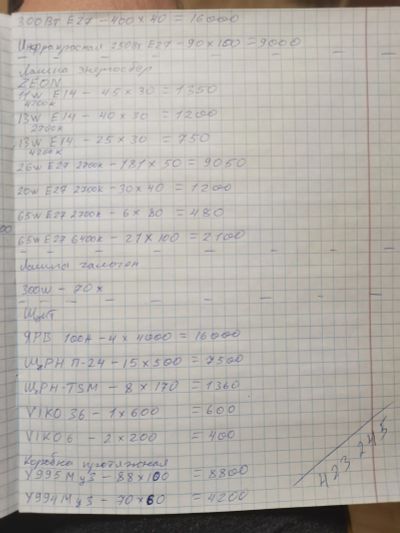 300Вт E27 - 400 x 40 = 16000
Инфракрасная 250Вт E27 - 90 x 100 = 9000
Лампа энергосбер
ZEON
11w E14 - 45 x 30 = 1350
4200к
13w E14 - 40 x 30 = 1200
2700к
13w E14 - 25 x 30 = 750
4200к
26w E27 2700к - 181 x 50 = 9050
20w E27 2700к - 30 x 40 = 1200
65w E27 2700к - 6 x 80 = 480
65w E27 6400к - 21 x 100 = 2100
Лампы галоген
300w - 70 x
Щит
ЯРВ 100А - 4 x 4000 = 16000
ЩРН П-24 - 15 x 500 = 7500
ЩРН-TSM - 8 x 170 = 1360
VIKO 36 - 1 x 600 = 600
VIKO 6 - 2 x 200 = 400
Коробка протяжная
У995МУ3 - 88 x 100 = 8800
У994МУ3 - 70 x 60 = 4200
423 245